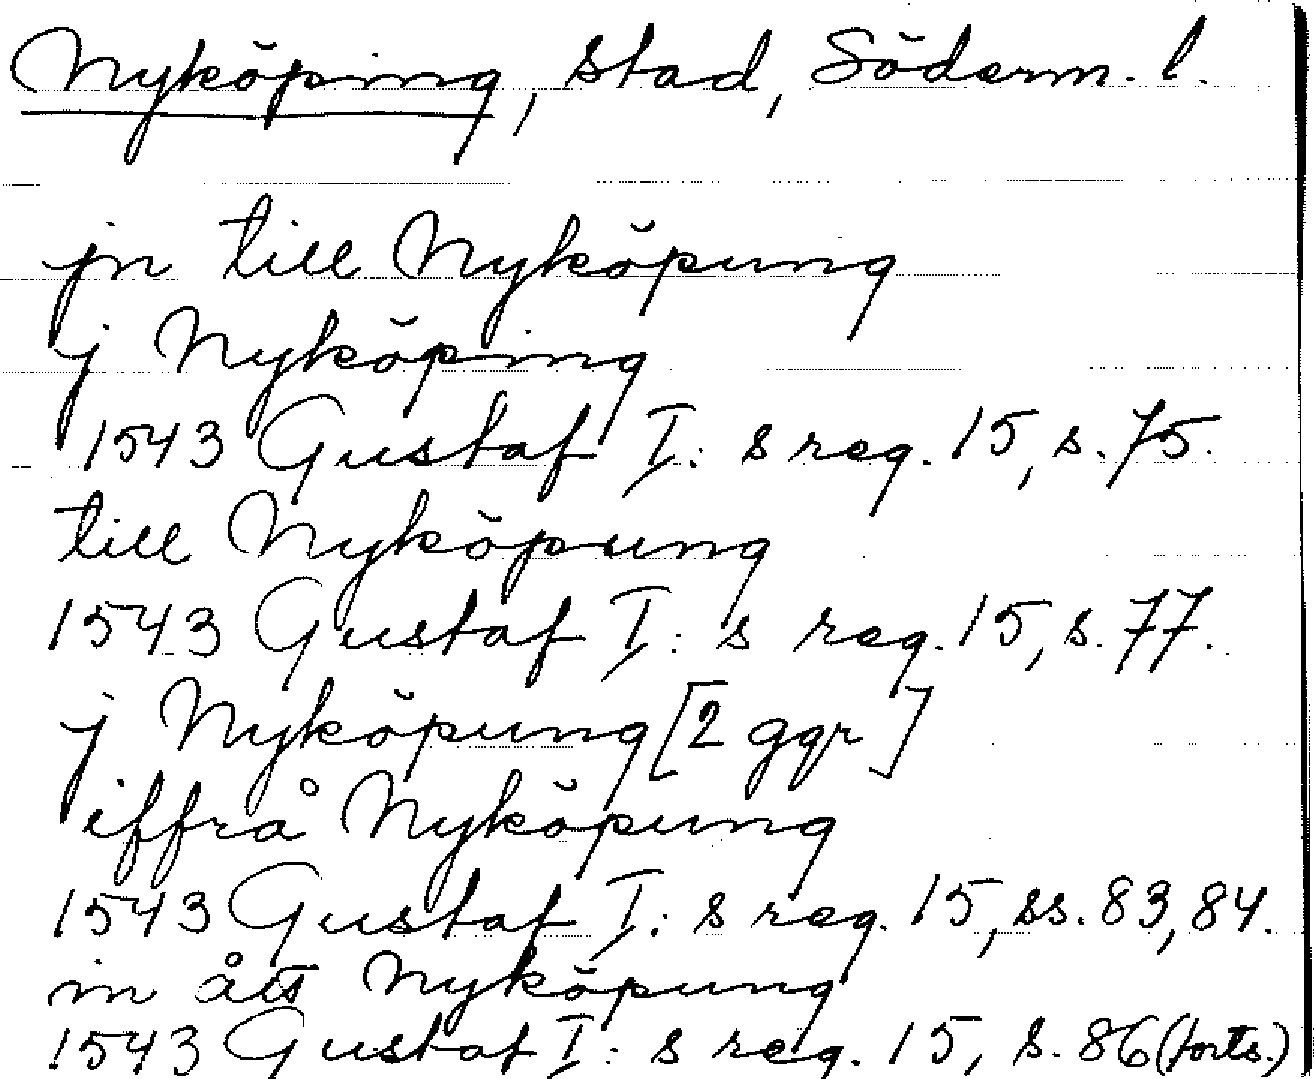 Nyköping, stad, Söderm. l.
jn till Nyköpung
j Nyköping
1543 Gustaf I:s reg. 15, s. 75.
till Nyköpung
1543 Gustaf I:s reg. 15, s. 77.
j Nyköpung [2 ggr]
iffrå Nyköpung
1543 Gustaf I:s reg. 15, ss. 83, 84.
in ått Nyköpung
1543 Gustaf I:s reg. 15, s. 86 (forts.)